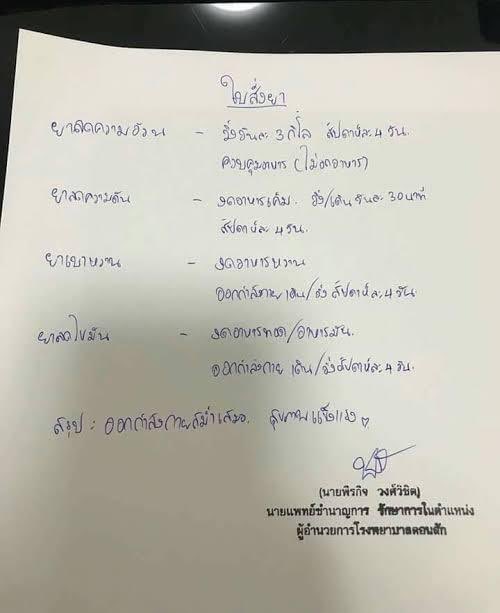 ใบสั่งยา
ยาลดความอ้วน - วิ่งวันละ 3 กิโล สัปดาห์ละ 4 วัน.
ควบคุมอาหาร (ไม่อดอาหาร)
ยาลดความดัน - งดอาหารเค็ม. วิ่ง/เดินวันละ 30 นาที
สัปดาห์ละ 4 วัน.
ยาเบาหวาน - งดอาหารหวาน
ออกกำลังกาย เดิน/วิ่ง สัปดาห์ละ 4 วัน
ยาลดไขมัน - งดอาหารทอด/อาหารมัน.
ออกกำลังกาย เดิน/วิ่งสัปดาห์ละ 4 วัน.
สรุป : ออกกำลังกายสม่ำเสมอ. สุขภาพแข็งแรง
(นายพิรกิจ วงศ์วิชิต)
นายแพทย์ชำนาญการ รักษาการในตำแหน่ง
ผู้อำนวยการโรงพยาบาลดอนสัก